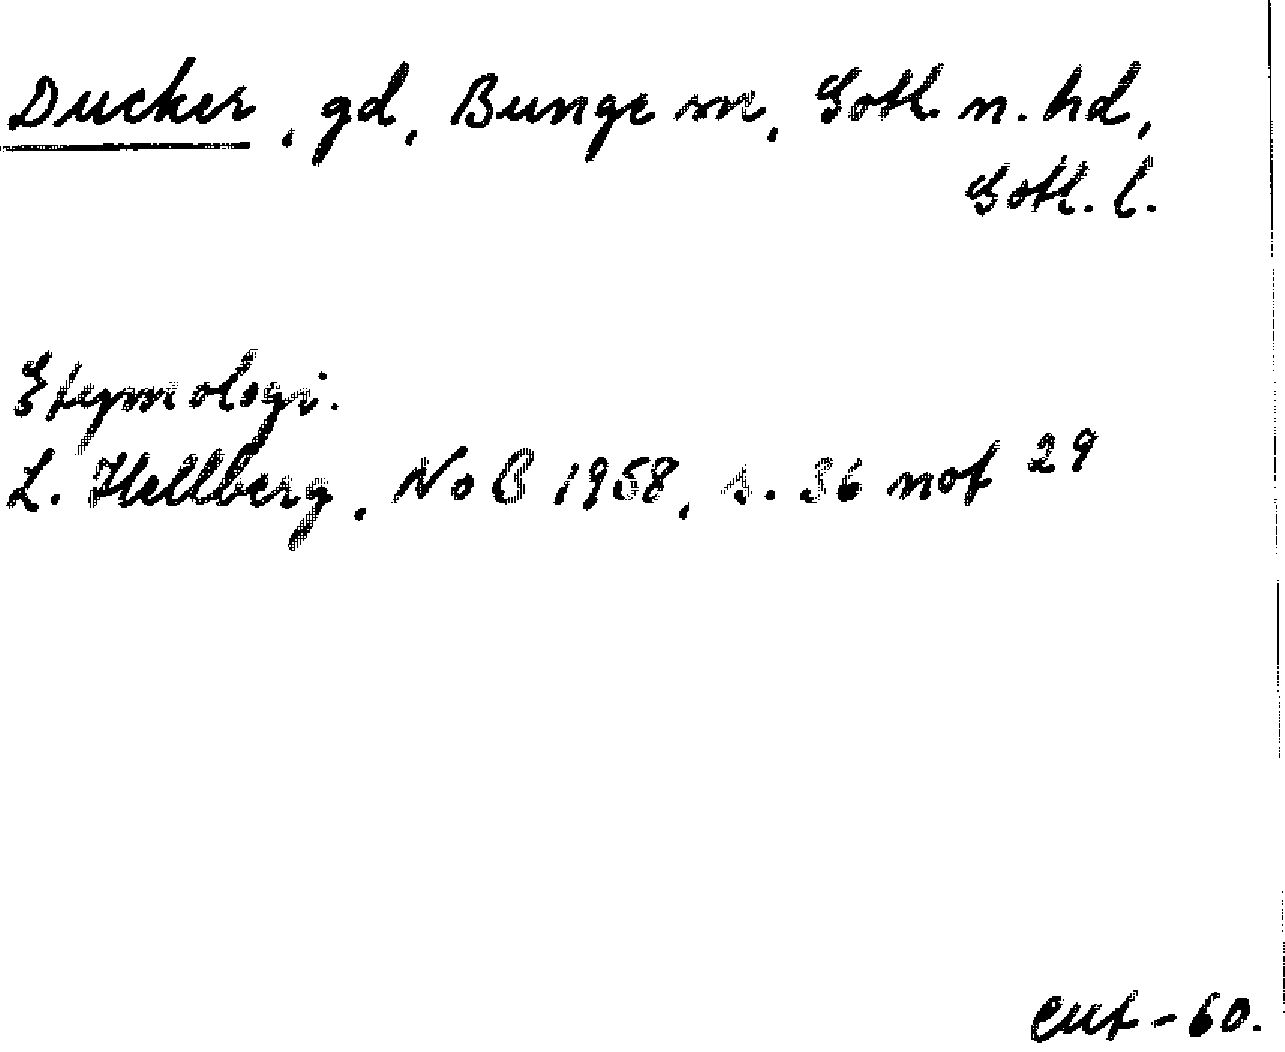 Ducker, gd, Bunge sn, Gotl. n. hd,
Gotl. l.
Etymologi.
L. Hellberg, NoB 1958, s. 36 not 29
-60.